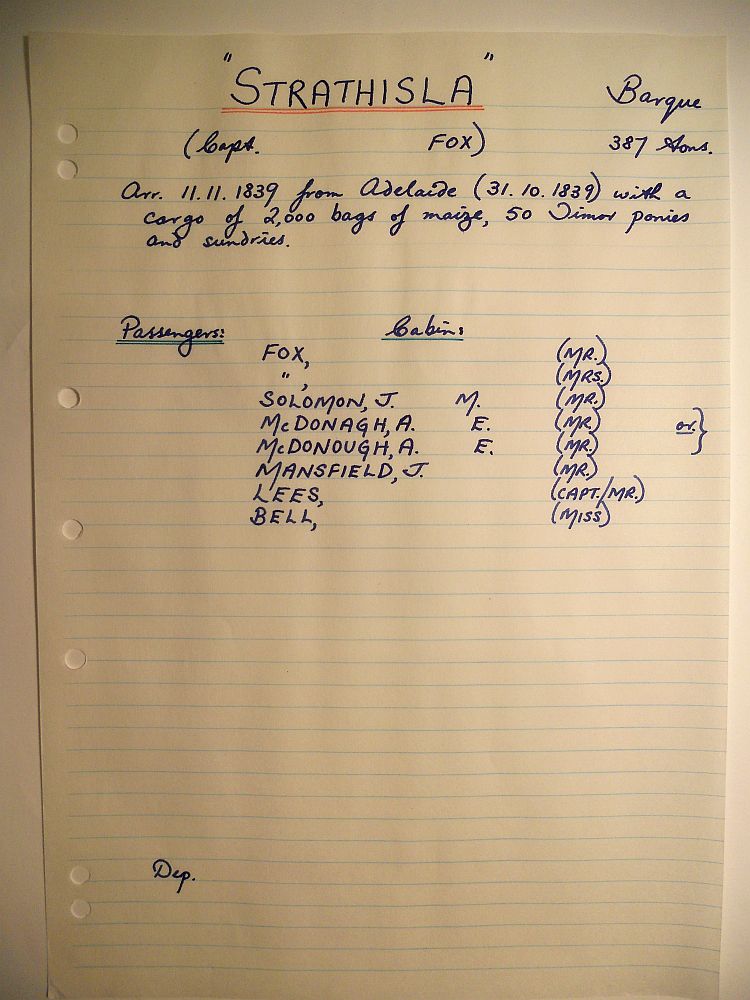 "STRATHISLA" Barque
(Capt. FOX) 387 tons.
Arr. 11.11.1839 from Adelaide (31.10.1839) with a
cargo of 2,000 bags of maize, 50 Timor ponies
and sundries.
Passengers: Cabin:
FOX, (MR.)
" , (MRS.)
SOLOMON, J. M. (MR.)
McDONAGH, A. E. (MR.) or. }
McDONOUGH, A. E. (MR.)
MANSFIELD, J. (MR.)
LEES, (CAPT./MR.)
BELL, (MISS)
Dep.